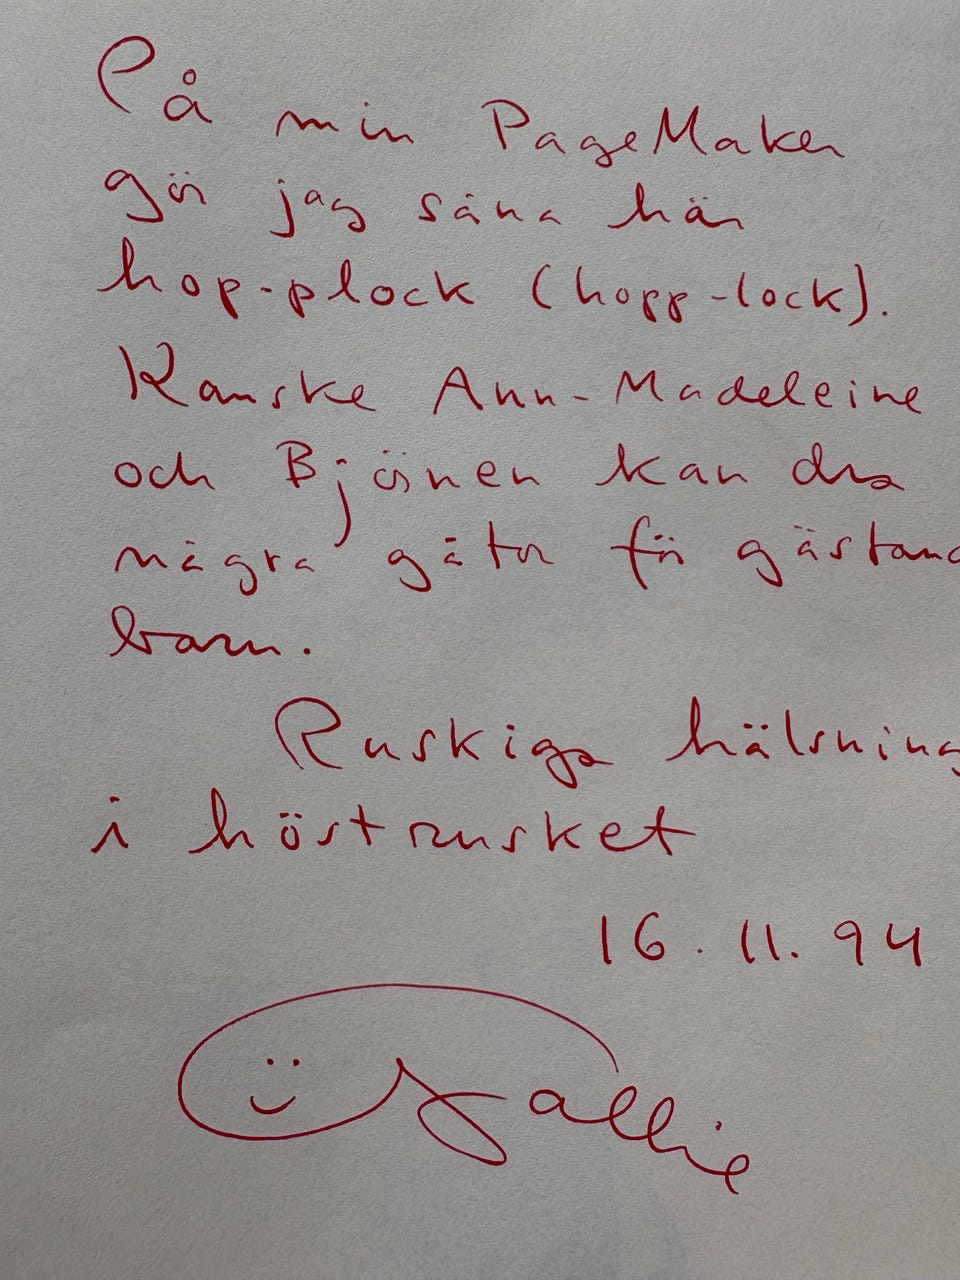 På min PageMaker
gör jag såna här
hop-plock (hopp-lock).
Kanske Ann-Madeleine
och Björnen kan dra
några gåtor för gästand
barn.
Ruskiga hälsning
i höstrusket
16.11.94
Gallie